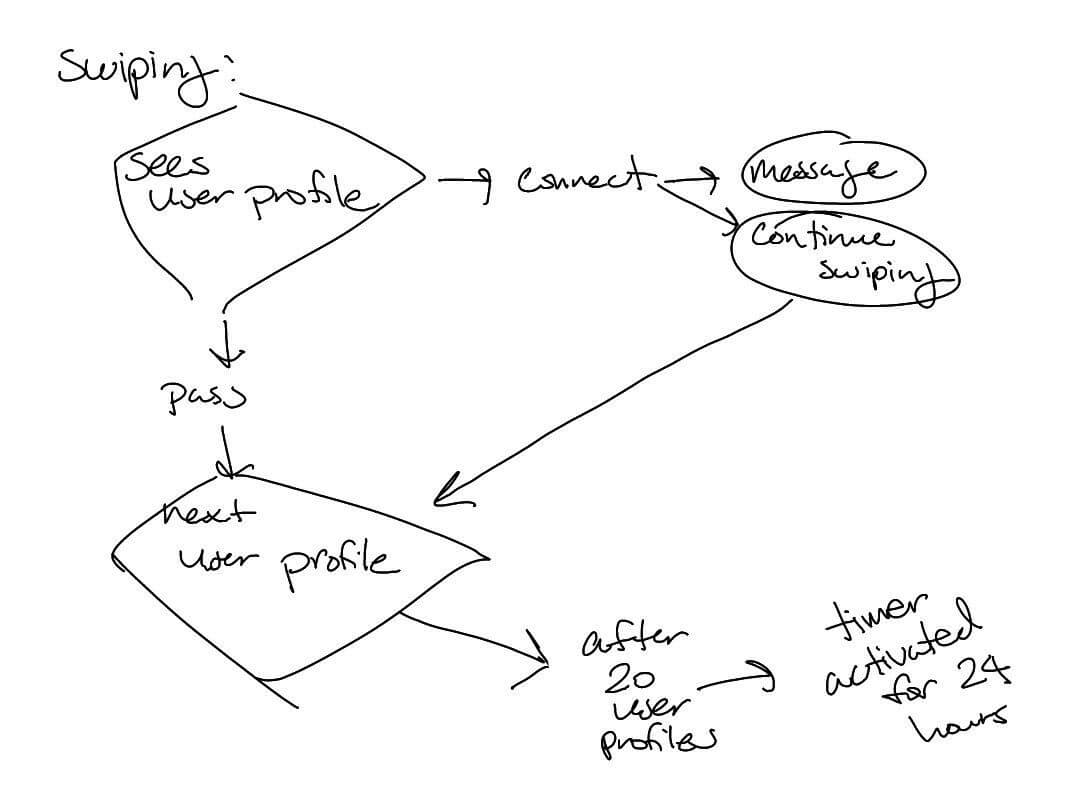 Swiping:
sees
user profile
Connect
message
Continue
swiping
pass
next
user profile
after
20
user
profiles
timer
activated
for 24
hours